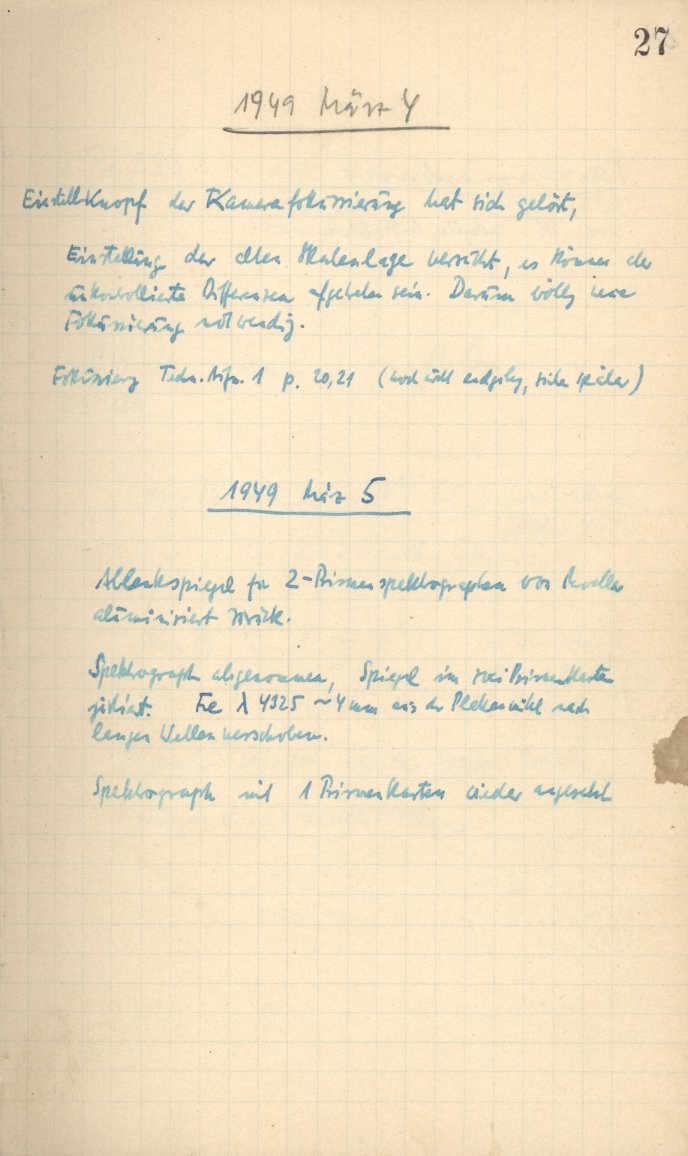 27
1949 März 4
Einstellknopf der Kamerafokussierung hat sich gelöst,
Einstellung der alten Skalenlage versucht, es können aber
unkontrollierte Differenzen aufgetreten sein. Darum völlig neue
Fokussierung notwendig.
Fokussierg Techn. Aufn. 1 p. 20,21 (noch nicht endgültig, siehe später)
1949 März 5
Ablenkspiegel für 2-Prismenspektrographen von
aluminisiert zurück.
Spektrograph abgenommen, Spiegel im zwei Prismenkasten
justiert. Fe λ 4325 ~4mm aus der Plattenmitte nach
langen Wellen verschoben.
Spektrograph mit 1 Prismenkasten wieder angesetzt